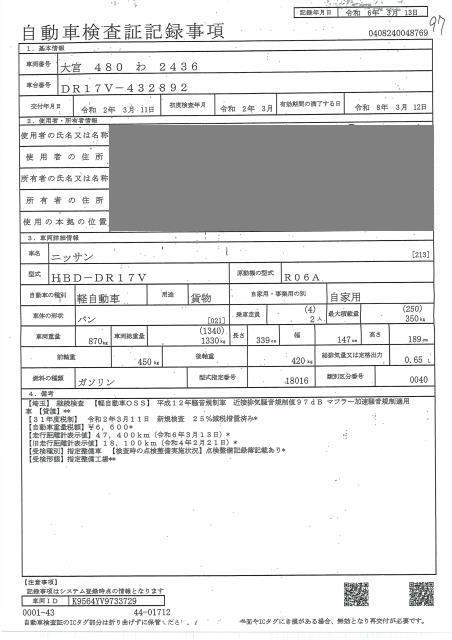 記録年月日 令和 6年 3月 13日
97
自動車検査証記録事項
0408240048769
1. 基本情報
車両番号 大宮 480 わ 2436
車台番号 DR17V-432892
交付年月日 令和 2年 3月 11日 初度検査年月 令和 2年 3月 有効期間の満了する日 令和 8年 3月 12日
2. 使用者・所有者情報
使用者の氏名又は名称
使用者の住所
所有者の氏名又は名称
所有者の住所
使用の本拠の位置
3. 車両詳細情報
車名 ニッサン [213]
型式 HBD-DR17V 原動機の型式 R06A
自動車の種別 軽自動車 用途 貨物 自家用・事業用の別 自家用
車体の形状 バン [021] 乗車定員 (4) 2人 最大積載量 (250) 350kg
車両重量 870kg 車両総重量 (1340) 1330kg 長さ 339cm 幅 147cm 高さ 189cm
前軸重 450kg 後軸重 420kg 総排気量又は定格出力 0.65 L
燃料の種類 ガソリン 型式指定番号 18016 類別区分番号 0040
4. 備考
【埼玉】 継続検査 【軽自動車OSS】 平成12年騒音規制車 近接排気騒音規制値97dB マフラー加速騒音規制適用
車 【貨渡】**
【31年度税制】 令和2年3月11日 新規検査 25%減税措置済み*
【自動車重量税額】 ¥6,600*
【走行距離計表示値】 47,400km (令和6年3月13日)*
【旧走行距離計表示値】 18,100km (令和4年2月21日)*
【受検種別】 指定整備車 【検査時の点検整備実施状況】 点検整備記録簿記載あり*
【受検形態】 指定整備工場**
【注意事項】
記録事項はシステム登録時点の情報となります
車両ID K9564YV9733729
0001-43 44-01712
自動車検査証のICタグ部分は折り曲げずに保管
面やICタグに き損がある場合、無効となり再交付が必要です。